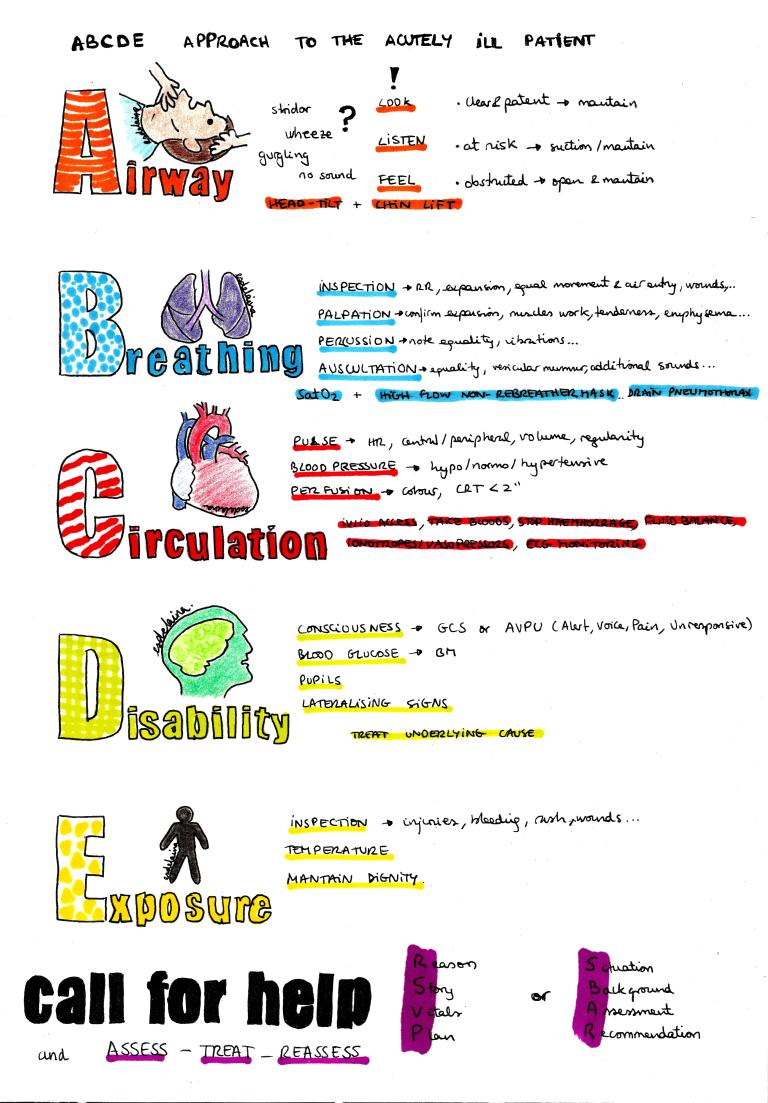 ABCDE APPROACH TO THE ACUTELY ILL PATIENT
Airway
stridor
wheeze
gurgling
no sound
?
!
LOOK
LISTEN
FEEL
• clear & patent → maintain
• at risk → suction/maintain
• obstructed → open & maintain
HEAD-TILT + CHIN LIFT
Breathing
INSPECTION → RR, expansion, equal movement & air entry, wounds,..
PALPATION → confirm expansion, muscles work, tenderness, emphysema...
PERCUSSION → note equality, vibrations...
AUSCULTATION → equality, vesicular murmur, additional sounds...
SatO2 + HIGH FLOW NON-REBREATHER MASK.. DRAIN PNEUMOTHORAX
Circulation
PULSE → HR, central/peripheral, volume, regularity
BLOOD PRESSURE → hypo/normo/hypertensive
PERFUSION → colour, CRT < 2"
IV/IO ACCESS, TAKE BLOODS, STOP HAEMHORRAGE, FLUID BALANCE,
IONOTROPES/VASOPRESSORS, ECG MONITORING
Disability
esdelaina.
CONSCIOUSNESS → GCS or AVPU (Alert, Voice, Pain, Unresponsive)
BLOOD GLUCOSE → BM
PUPILS
LATERALISING SIGNS
TREAT UNDERLYING CAUSE
Exposure
INSPECTION → injuries, bleeding, rash, wounds...
TEMPERATURE
MANTAIN DIGNITY.
call for help
and ASSESS - TREAT - REASSESS
Reason
Story
Vitals
Plan
or
Situation
Background
Assessment
Recommendation